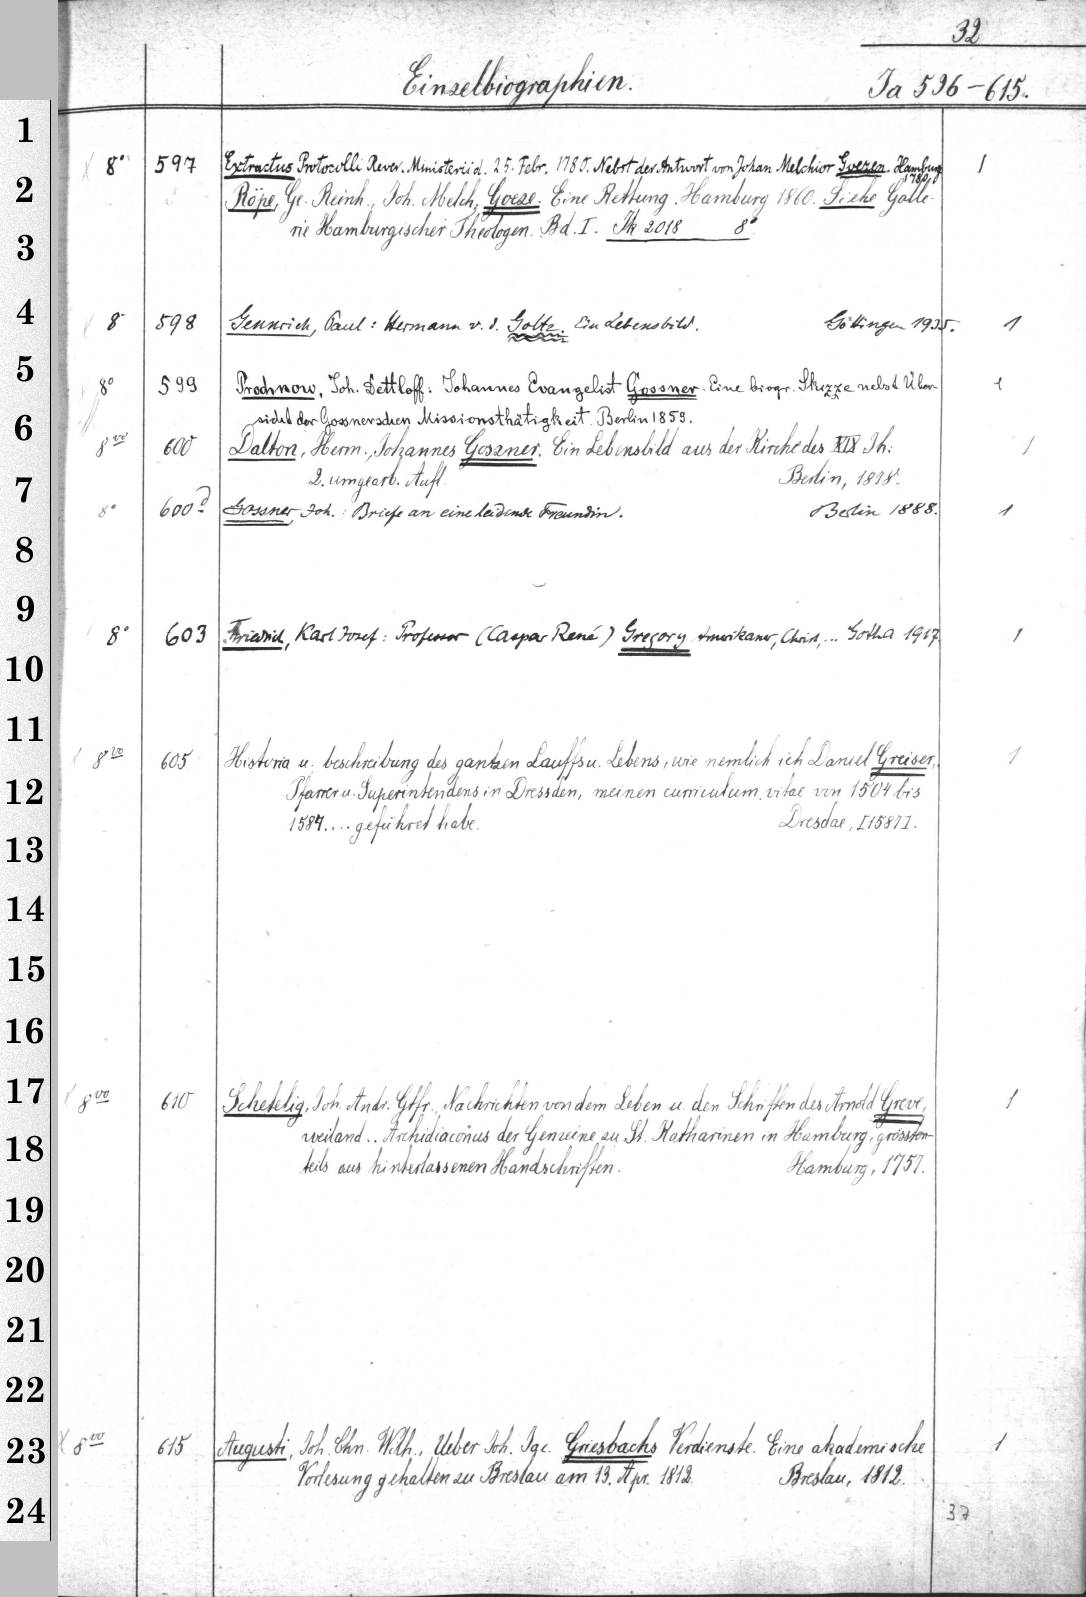 32
Einzelbiographien. Ja 596-615.
1
8° 597 Extractus Protocolli Rever. Ministerii d. 25. Febr. 1780. Nebst der Antwort von Johan Melchior Goezen. Hamburg 1
1780
2 Röpe, Ge. Reinh., Joh. Melch. Goeze. Eine Rettung. Hamburg 1860. Siehe Galle-
3 rie Hamburgischer Theologen. Bd. I. Jk 2018 8°
4 8° 598 Gennrich, Paul: Hermann v. d. Goltz. Ein Lebensbild. Göttingen 1935. 1
5 8° 599 Prochnow, Joh. Dettloff: Johannes Evangelist Gossner. Eine biogr. Skizze nebst Über- 1
6 sicht der Gossnerschen Missionsthätigkeit. Berlin 1859.
8vo 600 Dalton, Herm., Johannes Gossner. Ein Lebensbild aus der Kirche des XIX Jh. 1
7 2. umgearb. Aufl. Berlin, 1878.
8° 600d Gossner, Joh.: Briefe an eine leidende Freundin. Berlin 1888. 1
8
9
8° 603 Friedrich, Karl Josef: Professor (Caspar René) Gregory Amerikaner, Christ, ... Gotha 1917. 1
10
11
8vo 605 Historia u. beschreibung des gantzen Lauffs u. Lebens, wie nemlich ich Daniel Greiser, 1
12 Pfarrer u. Superintendens in Dressden, meinen curriculum vitae von 1504 bis
13 1587.... geführet habe. Dresdae, [1587].
14
15
16
17 8vo 610 Schetelig, Joh. Andr. Gtfr., Nachrichten von dem Leben u. den Schriften des Arnold Greve, 1
18 weiland .. Archidiaconus der Gemeine zu St. Katharinen in Hamburg, grössten-
teils aus hinterlassenen Handschriften. Hamburg, 1757.
19
20
21
22
23 8vo 615 Augusti, Joh. Chn. Wilh., Ueber Joh. Jac. Griesbachs Verdienste. Eine akademische 1
Vorlesung gehalten zu Breslau am 13. Apr. 1812. Breslau, 1812.
24 37